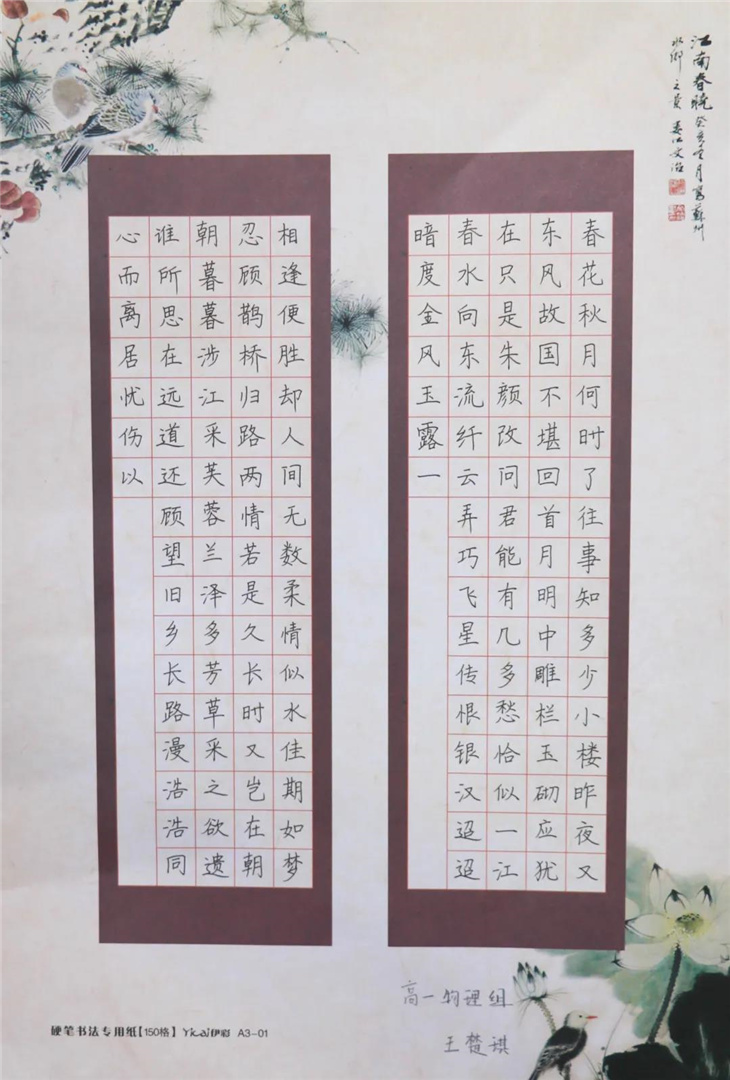 江南春晓
水乡之景 娄江文治
春花秋月何时了往事知多少小楼昨夜又
东风故国不堪回首月明中雕栏玉砌应犹
在只是朱颜改问君能有几多愁恰似一江
春水向东流纤云弄巧飞星传恨银汉迢迢
暗度金风玉露一
相逢便胜却人间无数柔情似水佳期如梦
忍顾鹊桥归路两情若是久长时又岂在朝
朝暮暮涉江采芙蓉兰泽多芳草采之欲遗
谁所思在远道还顾望旧乡长路漫浩浩同
心而离居忧伤以
高一物理组
王楚琪
硬笔书法专用纸【150格】 Yicai伊彩 A3-01